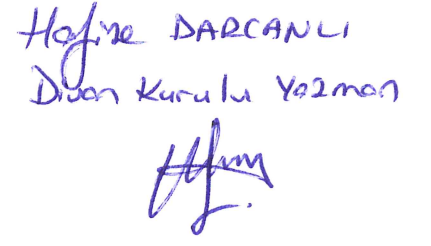 Hafize DARCANLI
Divan Kurulu Yazman